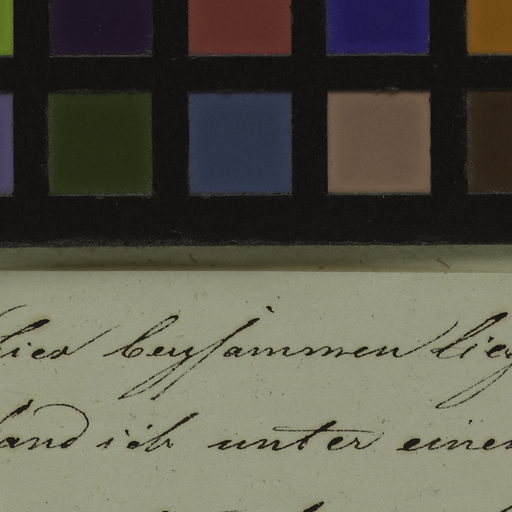 hier beysammen lieg
fand ich unter einer